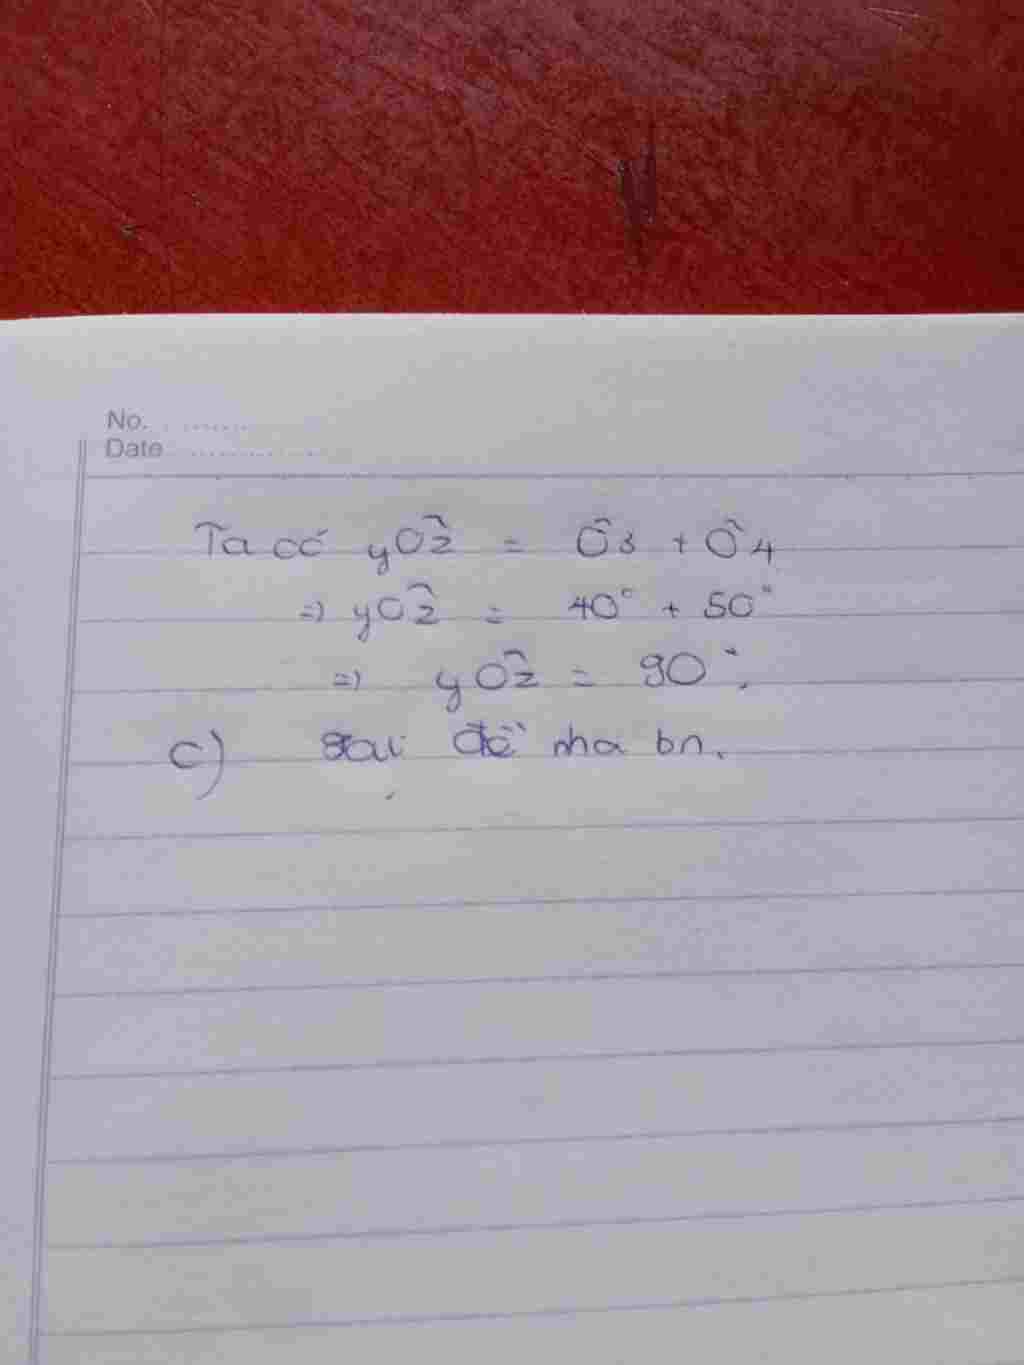 No. ........
Date ..............
Ta có yOz^ = Ô3 + Ô4
=) yOz^ = 40° + 50°
=) yOz^ = 90°.
c) sai đề nha bn.